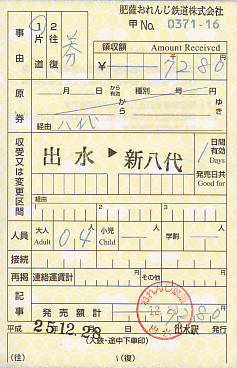 肥薩おれんじ鉄道株式会社
甲 No. 0371-16
事由
1片道
2往復
領収額 Amount Received
¥ 7280
原券
月 日 から有効 から ゆき
経由 八代
収受又は変更区間
出水 ▶ 新八代
1 日間有効 Days
発売日共 Good for
経由
人員
大人 Adult 04
小児 Child
学割
接続
再掲 連絡運賃計 その他
記事
発売額計 7280
おれんじ鉄道
平成 25.12.28 出水駅 発行
(入鋏・途中下車印)
(往) ~(復)